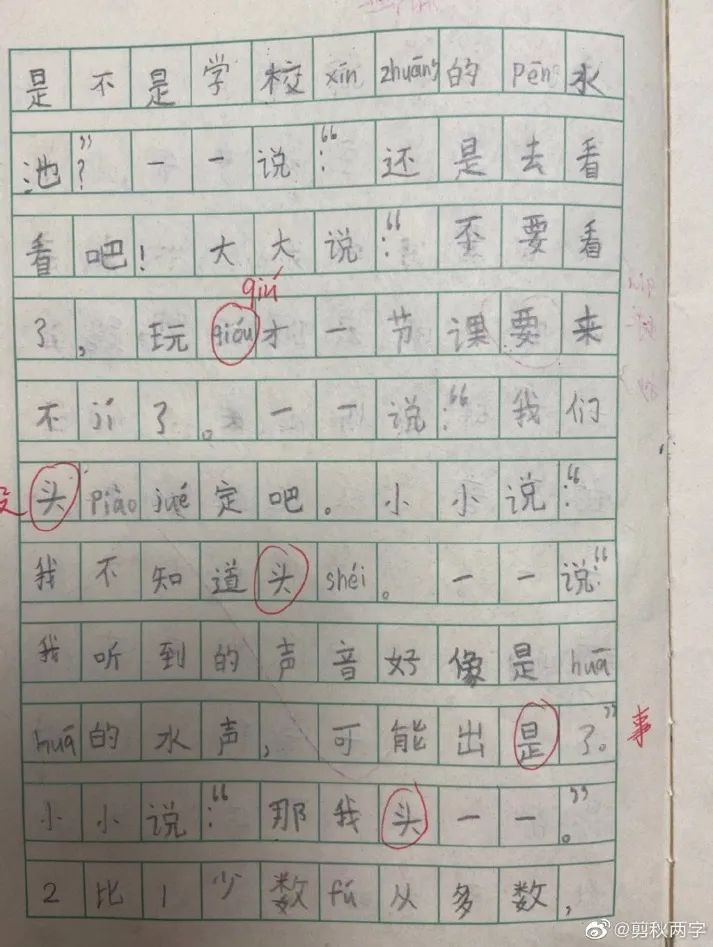 是不是学校xīnzhuāng的pēn水
池?”一一说:“还是去看
看吧!大大说:“歪要看
qiú
了,玩qióu才一节课要来
不jí了。一一说:“我们
头piàojué定吧。小小说:“
我不知道头shéi。一一说:“
我听到的声音好像是huā
huā的水声,可能出是了。”
事
小小说:“那我头一一。”
2比1少数fú从多数,
@剪秋两字